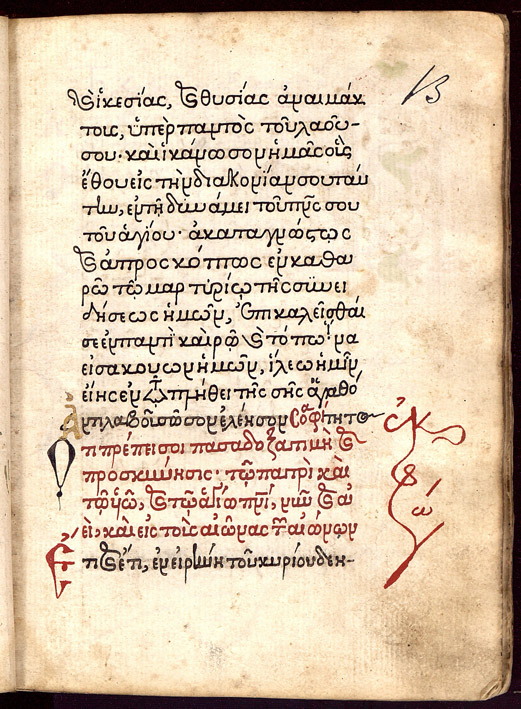 13
καὶ ἱκεσίας, καὶ θυσίας ἀναιμάκ
τοις, ὑπὲρ παντὸς τοῦ λαοῦ
σου· καὶ ἱκάνωσον ἡμᾶς οἷς
ἔθου εἰς τὴν διακονίαν σου ταύ
την, ἐν τῇ δυνάμει τοῦ πνς σου
τοῦ ἁγίου· ἀκαταγνώστως
καὶ ἀπροσκόπτως ἐν καθα
ρῷ τῷ μαρτυρίῳ τῆς συνει
δήσεως ἡμῶν, ἐπικαλεῖσθαί
σε ἐν παντὶ καιρῷ καὶ τόπῳ· ἵνα
εἰσακούων ἡμῶν, ἵλεως ἡμῖν
εἴης ἐν τῷ πλήθει τῆς σῆς ἀγαθό
Ἀντιλαβοῦ σῶσον ἐλέησον Σοφία
Ὅτι πρέπει σοι πᾶσα δόξα τιμὴ καὶ
προσκύνησις· τῷ πατρὶ καὶ
τῷ υἱῷ, καὶ τῷ ἁγίῳ πνι, νῦν καὶ ἀεὶ
, καὶ εἰς τοὺς αἰῶνας τῶν αἰώνων
Ἔτι καὶ ἔτι, ἐν εἰρήνῃ τοῦ κυρίου δεη-